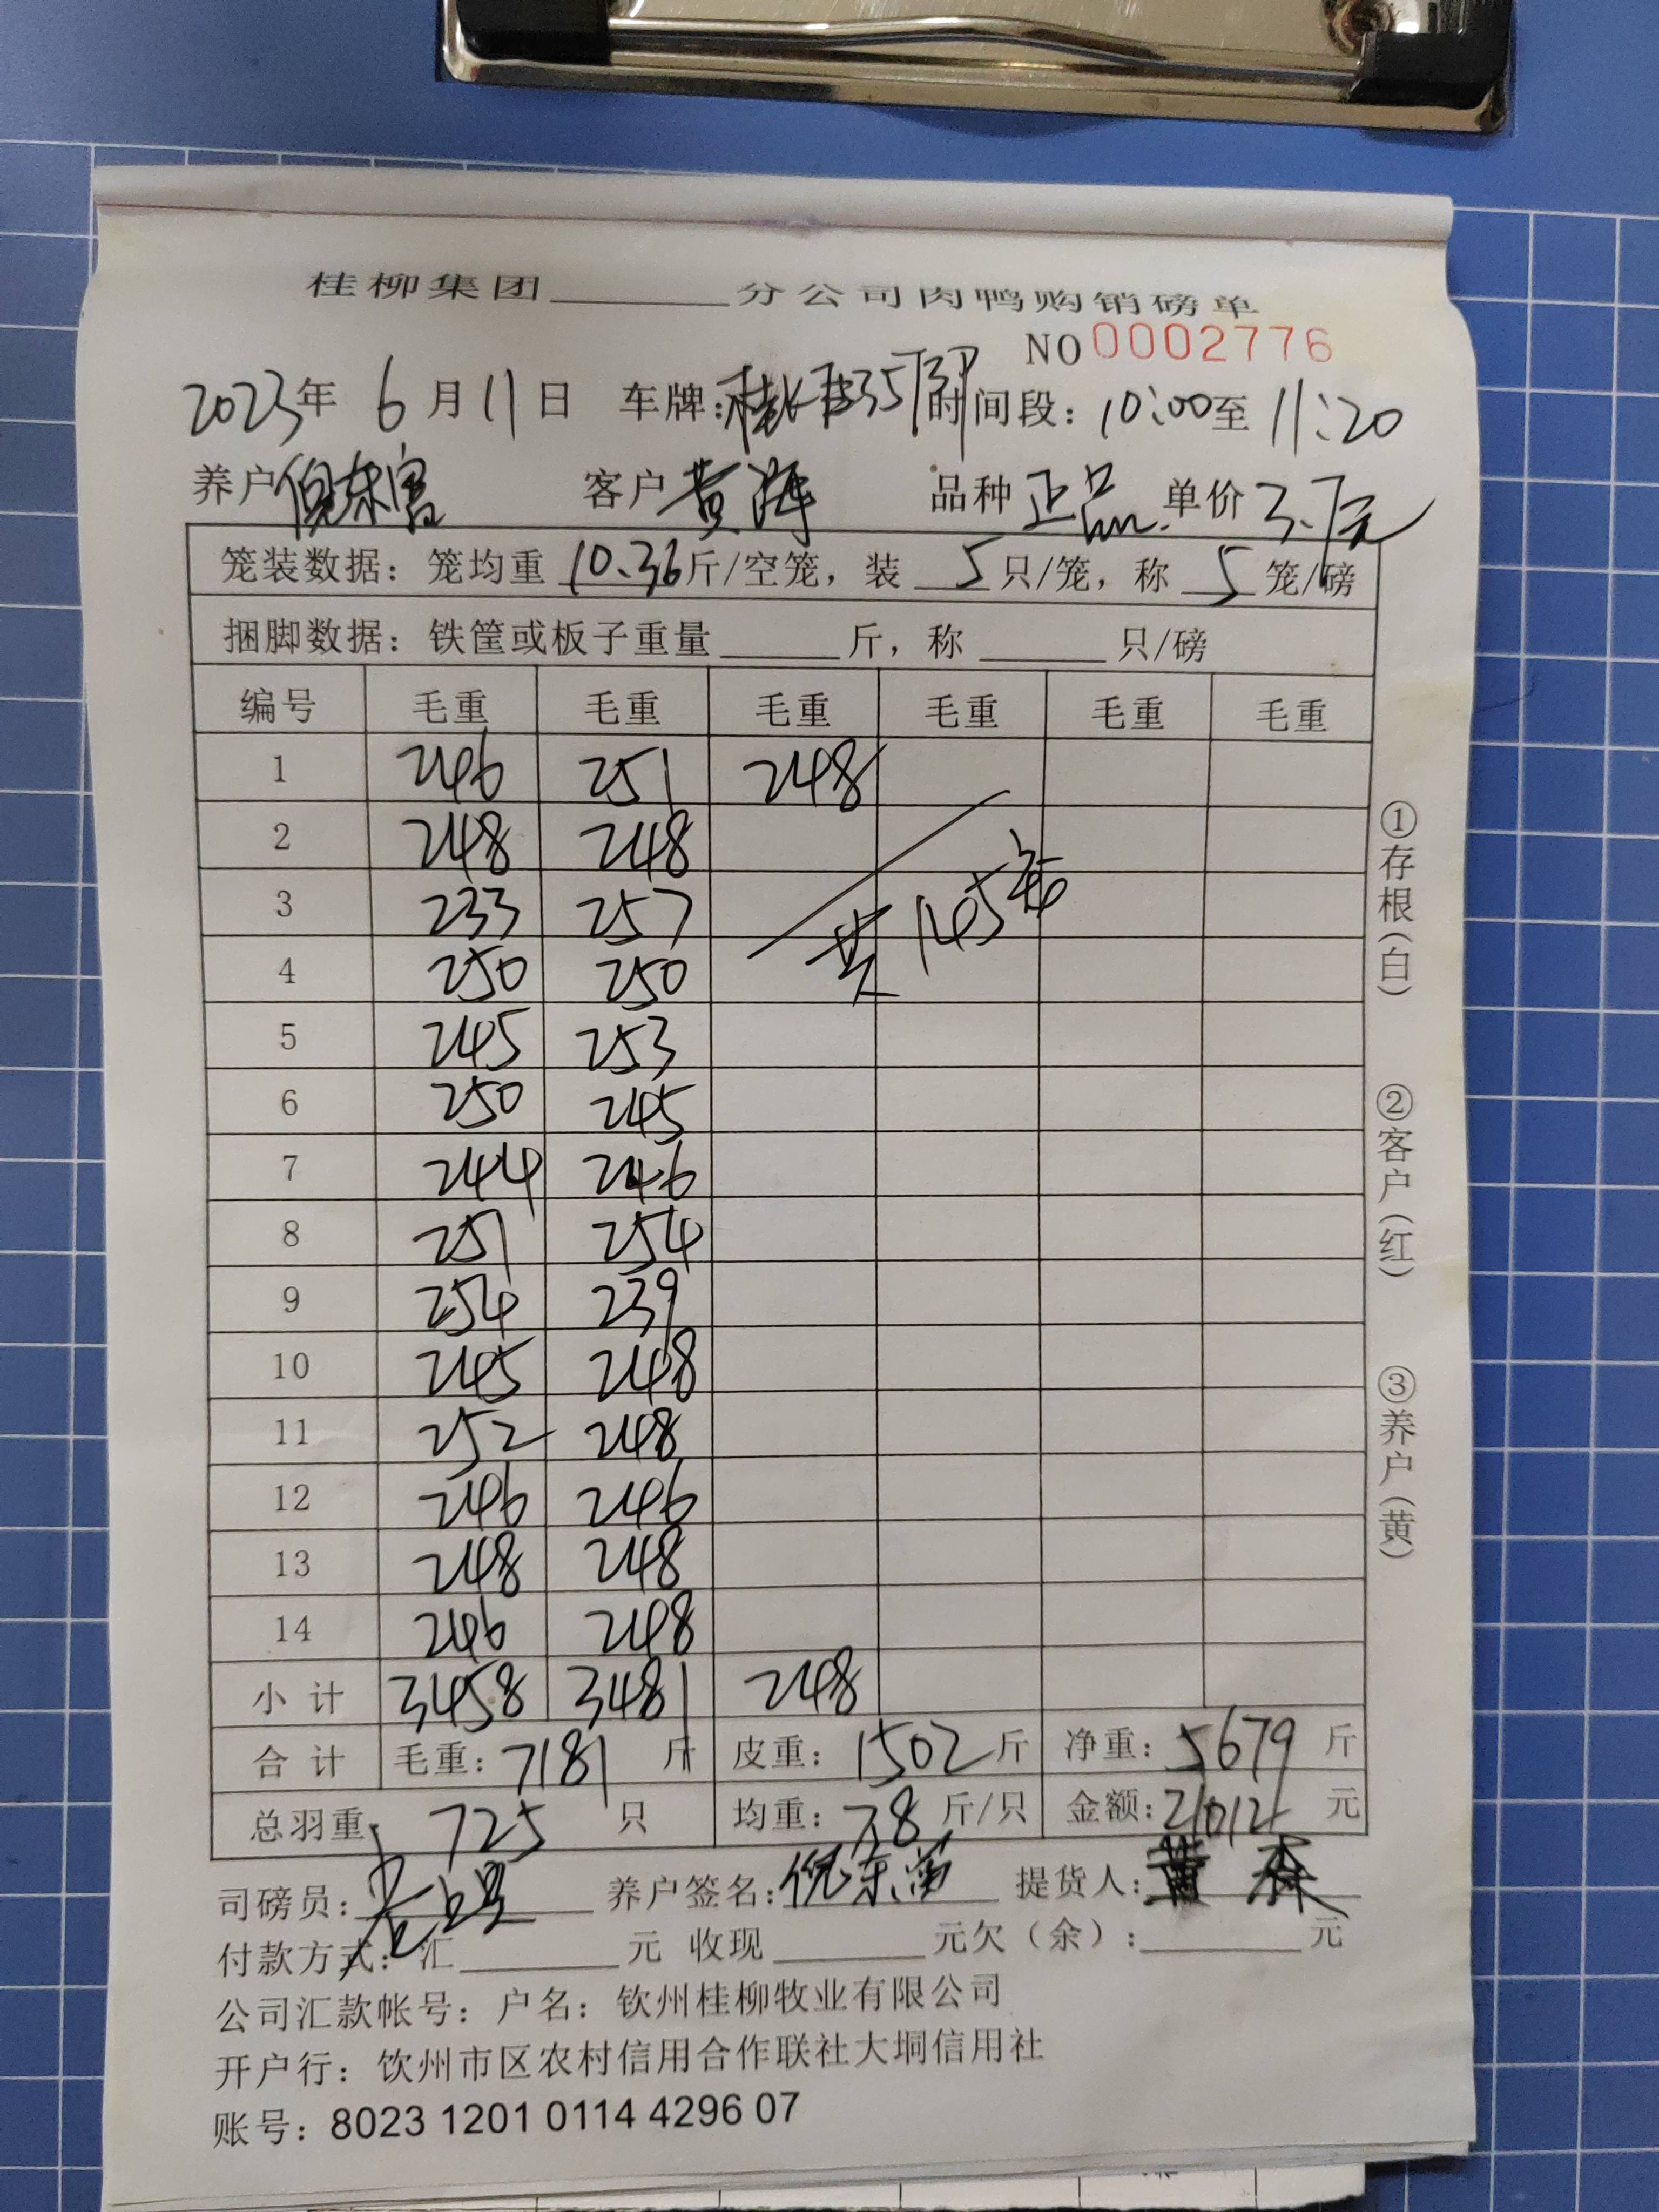 桂柳集团______分公司肉鸭购销磅单
NO 0002776
2023年 6月11日 车牌: 时间段: 10:00至 11:20
养户 客户 黄 品种 正品 单价 3.7元
笼装数据: 笼均重 10.36斤/空笼, 装 5只/笼, 称 5 笼/磅
捆脚数据: 铁筐或板子重量______斤, 称______只/磅
编号 毛重 毛重 毛重 毛重 毛重 毛重
1 246 251 248
2 248 248
3 233 257
共145笼
4 250 250
5 245 253
6 250 245
7 244 246
8 251 254
9 254 239
10 245 248
11 252 248
12 246 246
13 248 248
14 246 248
小计 3458 3481 248
合计 毛重: 7181 斤 皮重: 1502斤 净重: 5679 斤
总羽重: 725 只 均重: 7.8 斤/只 金额: 21012 元
司磅员: 养户签名: 提货人: 黄
付款方式: 汇______元 收现______元欠(余):______元
公司汇款帐号: 户名: 钦州桂柳牧业有限公司
开户行: 钦州市区农村信用合作联社大垌信用社
账号: 8023 1201 0114 4296 07
①存根(白) ②客户(红) ③养户(黄)